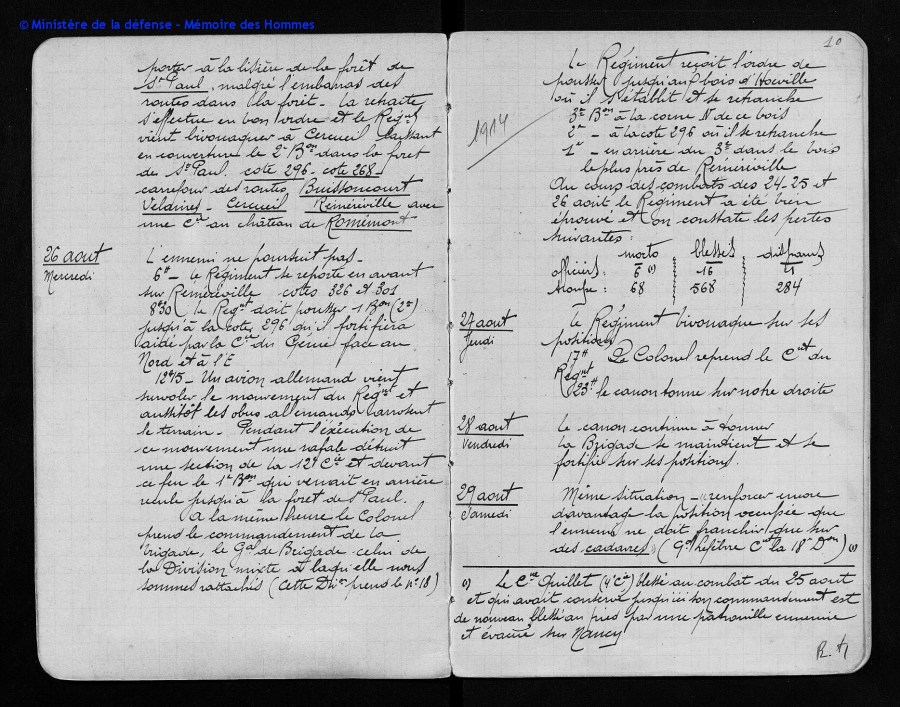 © Ministère de la défense - Mémoire des Hommes
porter à la lisière de la forêt de
St Paul, malgré l'embarras des
routes dans la forêt - La retraite
s'effectue en bon ordre et le Régt
vient bivouaquer à Cerceuil laissant
en couverture le 2e Bon dans la foret
de St Paul. cote 296 - cote 268 -
carrefour des routes, Buissoncourt
Veldrines - Cerceuil Réméréville avec
une Cie au château de Romémont
26 aout
Mercredi
L'ennemi ne poursuit pas -
6H - Le Régiment se reporte en avant
sur Reméréville cotes 326 et 301
8H30 Le Regnt doit pousser 1 Bon (2e)
jusqu'à la cote 296 qu'il fortifiera
aidé par la Cie du Génie face au
Nord et à l'E
12H15 - Un avion allemand vient
survoler le mouvement du Régnt et
aussitôt les obus allemands arrosent
le terrain - Pendant l'exécution de
ce mouvement une rafale détruit
une section de la 12e Cie et devant
ce feu le 1er Bon qui venait en arrière
recule jusqu'à la foret de St Paul.
A la même heure le Colonel
prend le commandement de la
brigade, le Gal de Brigade celui de
la Division mixte à laquelle nous
sommes rattachés (Cette Dion prend le n° 18)
10
1914
Le Régiment reçoit l'ordre de
pousser jusqu'au bois d'Hoéville
où il s'établit et se retranche
3e Bon à la corne N de ce bois
2e - à la cote 296 où il se retranche
1er - en arrière du 3e dans le bois
le plus près de Réméréville
Au cours des combats des 24-25 et
26 aout le Régiment a été bien
éprouvé et on constate les pertes
suivantes :
morts blessés disparus
officiers : 6 (1) 16 4
troupe : 68 568 284
27 aout
Jeudi
Le Régiment bivouaque sur ses
positions
17H Le Colonel reprend le Cnt du
Régnt
23H le canon tonne sur notre droite
28 aout
Vendredi
Le canon continue à tonner
La Brigade se maintient et se
fortifie sur ses positions.
29 aout
Samedi
Même situation - "renforcer encore
davantage la position occupée que
l'ennemi ne doit franchir que sur
des cadavres" (Gal Lefèbre Cnt la 18e Don) (1)
(1) Le Cne Quillet (4e Cie) blessé au combat du 25 aout
et qui avait conservé jusqu'ici son commandement est
de nouveau blessé au pied par une patrouille ennemie
et évacué sur Nancy